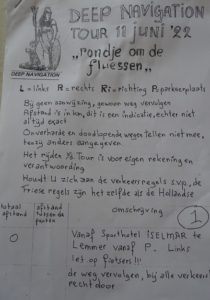 DEEP NAVIGATION
TOUR 11 JUNI '22
„rondje om de
fluessen"
DEEP NAVIGATION
L = links R = rechts Ri = richting P = parkeerplaats
Bij geen aanwijzing, gewoon weg vervolgen
Afstand is in km, dit is een indicatie, echter niet
altijd exact
Onverharde en doodlopende wegen tellen niet mee,
tenzij anders aangegeven
Het rijden v/d Tour is voor eigen rekening en
verantwoording
Houdt U zich aan de verkeersregels s.v.p., de
Friese regels zijn het zelfde als de Hollandse
totaal afstand
afstand tussen de punten
omschrijving
1
0
Vanaf Sporthotel ISELMAR te
Lemmer vanaf P. Links
let op fietsers!!!
de weg vervolgen, bij alle verkeer
recht door